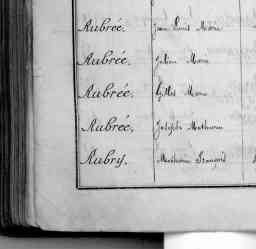 Aubrée. Jean Louis Marie
Aubrée. Julien Marie
Aubrée. Gilles Marie
Aubrée. Joseph Mathurin
Aubry. Mathurin François